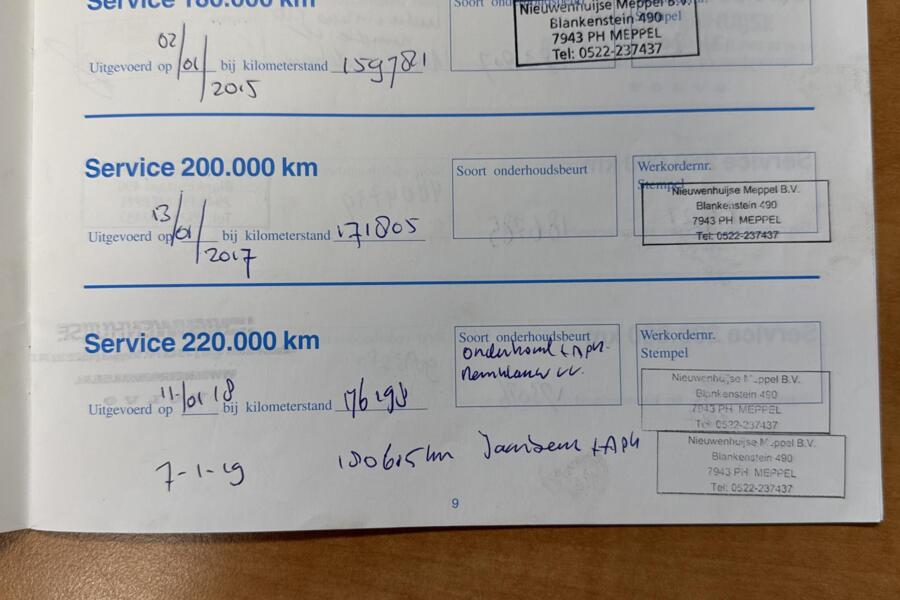 Service 180.000 km
Soort onderhoudsbeurt
Werkordernr.
Stempel
Nieuwenhuijse Meppel B.V.
Blankenstein 490
7943 PH MEPPEL
Tel: 0522-237437
Uitgevoerd op 02/01/2015 bij kilometerstand 159781
Service 200.000 km
Soort onderhoudsbeurt
Werkordernr.
Stempel
Nieuwenhuijse Meppel B.V.
Blankenstein 490
7943 PH MEPPEL
Tel: 0522-237437
Uitgevoerd op 13/01/2017 bij kilometerstand 171805
Service 220.000 km
Soort onderhoudsbeurt
onderhoud + APK
Werkordernr.
Stempel
Nieuwenhuijse Meppel B.V.
Blankenstein 490
7943 PH MEPPEL
Tel: 0522-237437
Uitgevoerd op 11/01 18 bij kilometerstand 176198
7-1-19 180615 km + APK
Nieuwenhuijse Meppel B.V.
Blankenstein 490
7943 PH MEPPEL
Tel: 0522-237437
9